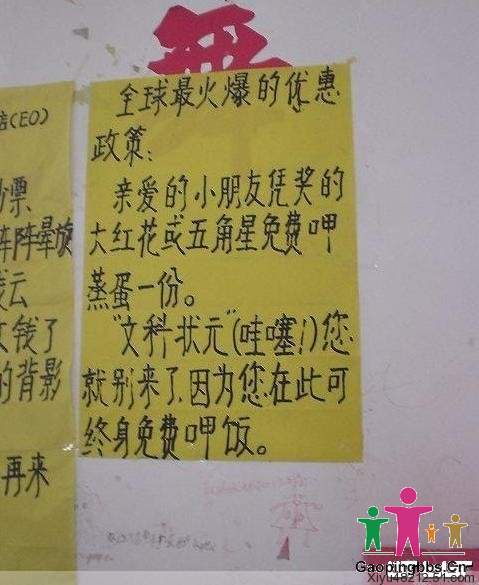 店(CEO)
钞票
阵阵晕旋
浅云
攵钱了
的背影
再来
全球最火爆的优惠
政策:
亲爱的小朋友凭奖的
大红花或五角星免费呷
蒸蛋一份。
"文科状元"(哇噻!)您
就别来了,因为您在此可
终身免费呷饭。
Gaopingbbs.Cn
Xiyu48212.51.com